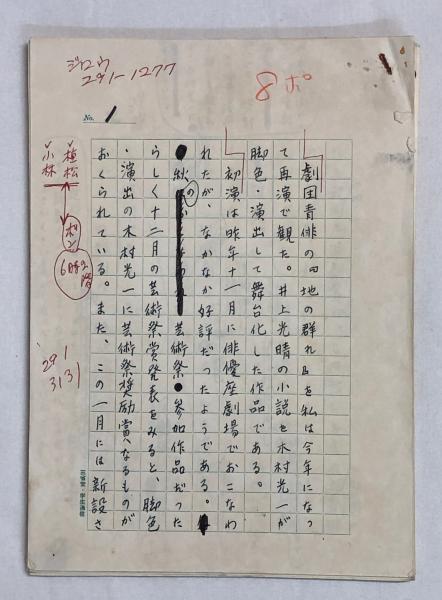 ジロウ
291-1277
8ポ
No. 1
劇団青俳の『地の群れ』を私は今年になっ
て再演で観た。井上光晴の小説を木村光一が
脚色・演出して舞台化した作品である。
初演は昨年十一月に俳優座劇場でおこなわ
れたが、なかなか好評だったようである。
秋の芸術祭参加作品だった
らしく十二月の芸術祭賞発表をみると、脚色
・演出の木村光一に芸術祭奨励賞なるものが
おくられている。また、この一月には新設さ
植松
小林
6時
291
3131
三省堂・学生通信